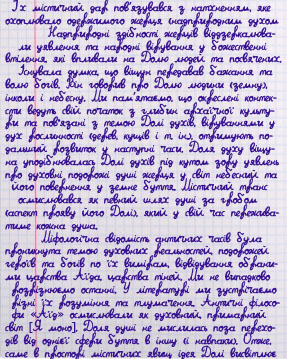 Їх містичний дар пов'язувався з натхненням, яке
охоплювало одержимого жерця надприродним духом
Надприродні здібності жерців віддзеркалюва-
ли уявлення та народні вірування у божественні
втілення, які впливали на Долю людей та посвячених.
Існувала думка, що віщун передавав бажання та
волю богів. Він говорив про Долю людини (земну),
інколи і небесну. Ми пам'ятаємо, що окреслені контек-
сти ведуть свій початок з глибин архаїчної культу-
ри та пов'язані з темою Долі духів, віруваннями у
дух рослинності (дерев, кущів і т. ін.), отримують по-
дальший розвиток у наступні часи. Доля духу віщу-
на уподібнювалась Долі духів під кутом зору уявлень
про духовні подорожі душі жерця у світ небесний та
його повернення у земне буття. Містичний транс
осмислювався як певний шлях душі за гробом
(аспект прояву його Долі), який у свій час пережива-
тиме кожна душа.
Міфологічна свідомість античних часів була
пронизана темою духовних реальностей, подорожей
героїв та богів по їх вимірам, відвідування обрани-
ми царства Аїда, царства тіней. Ми не випадково
розрізнюємо останні. У літературі ми зустрічаємо
різні їх розуміння та тлумачення. Античні філосо-
фи «Аїд» осмислювали як духовний, примарний
світ [Я моно]. Доля душі не мислилась поза перехо-
дів від однієї сфери буття в іншу (і навпаки). Отже,
саме в просторі містичних явищ ідея Долі висвітлює